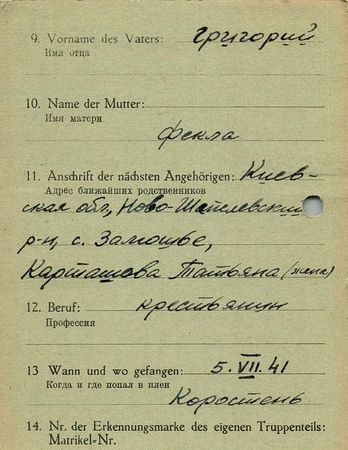 9. Vorname des Vaters: Григорий
Имя отца
10. Name der Mutter:
Имя матери
фекла
11. Anschrift der nächsten Angehörigen: Киев-
Адрес ближайших родственников
ская обл, Ново-Шепелевский
р-н, с. Замощье,
Карташова Татьяна (жена)
12. Beruf: крестьянин
Профессия
13 Wann und wo gefangen: 5. VII. 41
Когда и где попал в плен
Коростень
14. Nr. der Erkennungsmarke des eigenen Truppenteils:
Matrikel-Nr.